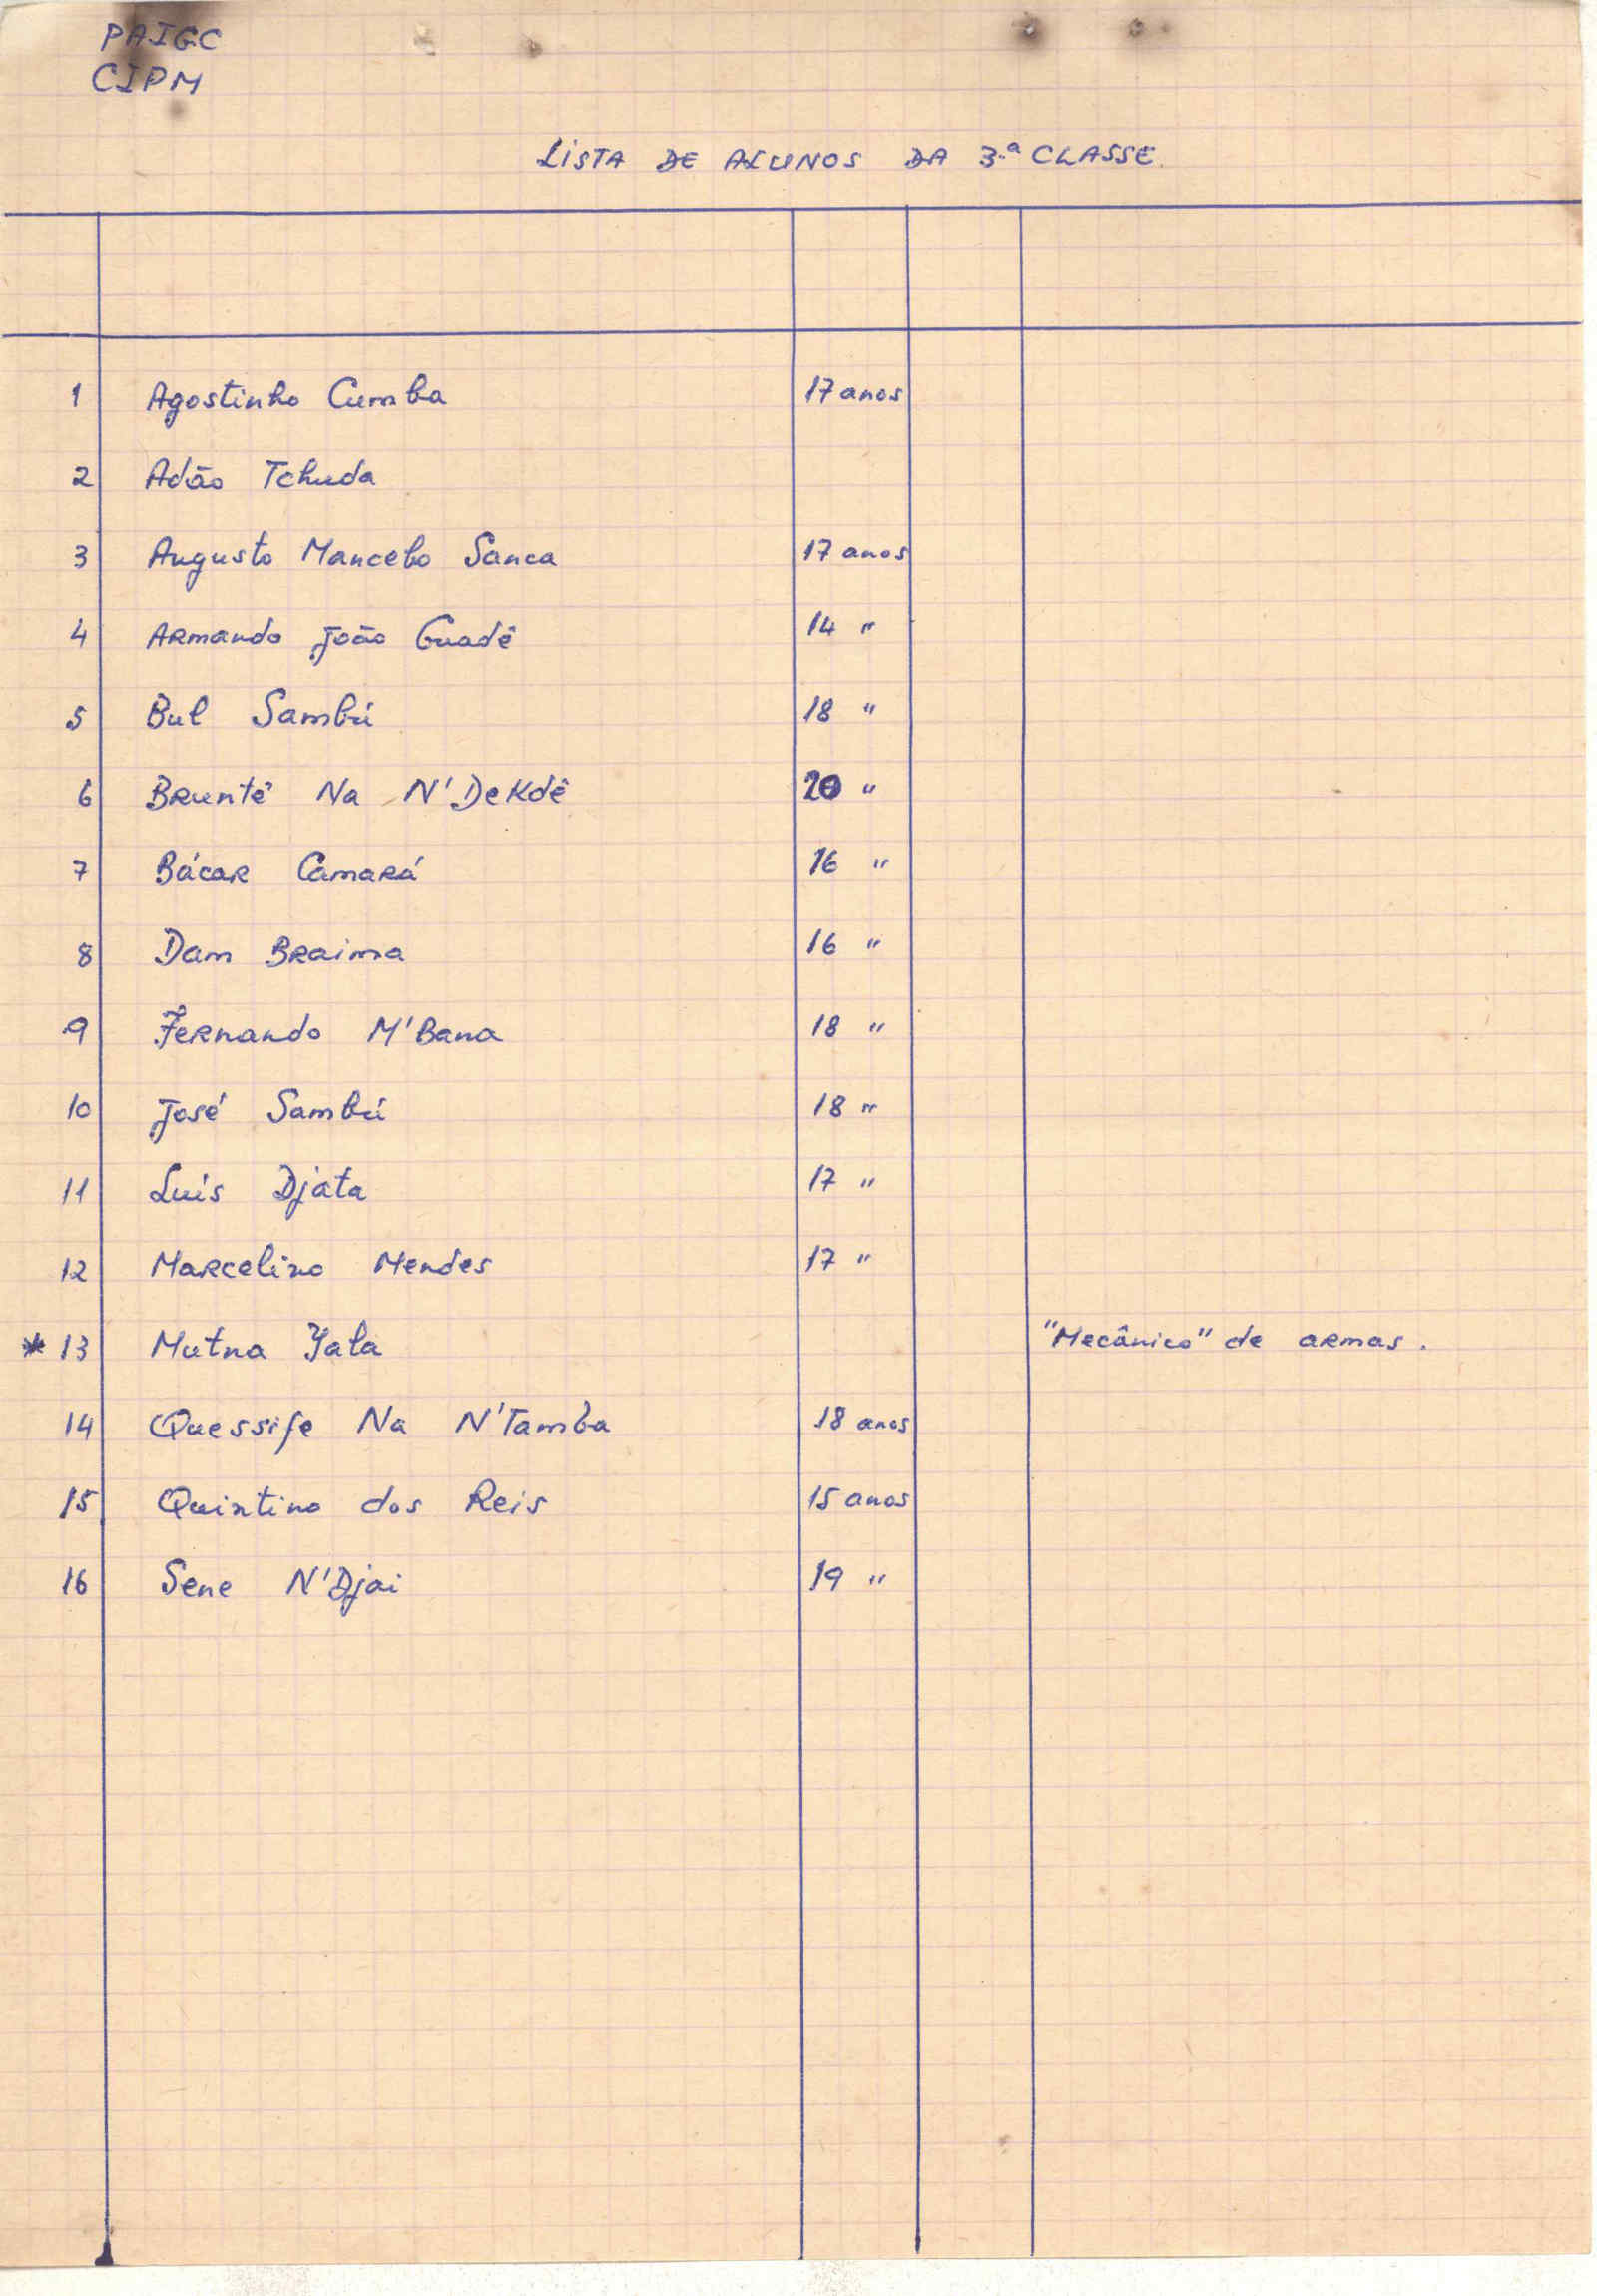 PAIGC
CIPM
LISTA DE ALUNOS DA 3.ª CLASSE.
1 Agostinho Cumba 17 anos
2 Adão Tchuda
3 Augusto Mancebo Sanca 17 anos
4 Armando João Guadê 14 "
5 Bul Sambú 18 "
6 Bruntê Na N'Dekdê 20 "
7 Bácar Camará 16 "
8 Dam Braima 16 "
9 Fernando M'Bana 18 "
10 José Sambú 18 "
11 Luís Djata 17 "
12 Marcelino Mendes 17 "
* 13 Mutna Yala "Mecânico" de armas.
14 Quessife Na N'Tamba 18 anos
15 Quintino dos Reis 15 anos
16 Sene N'Djai 19 "